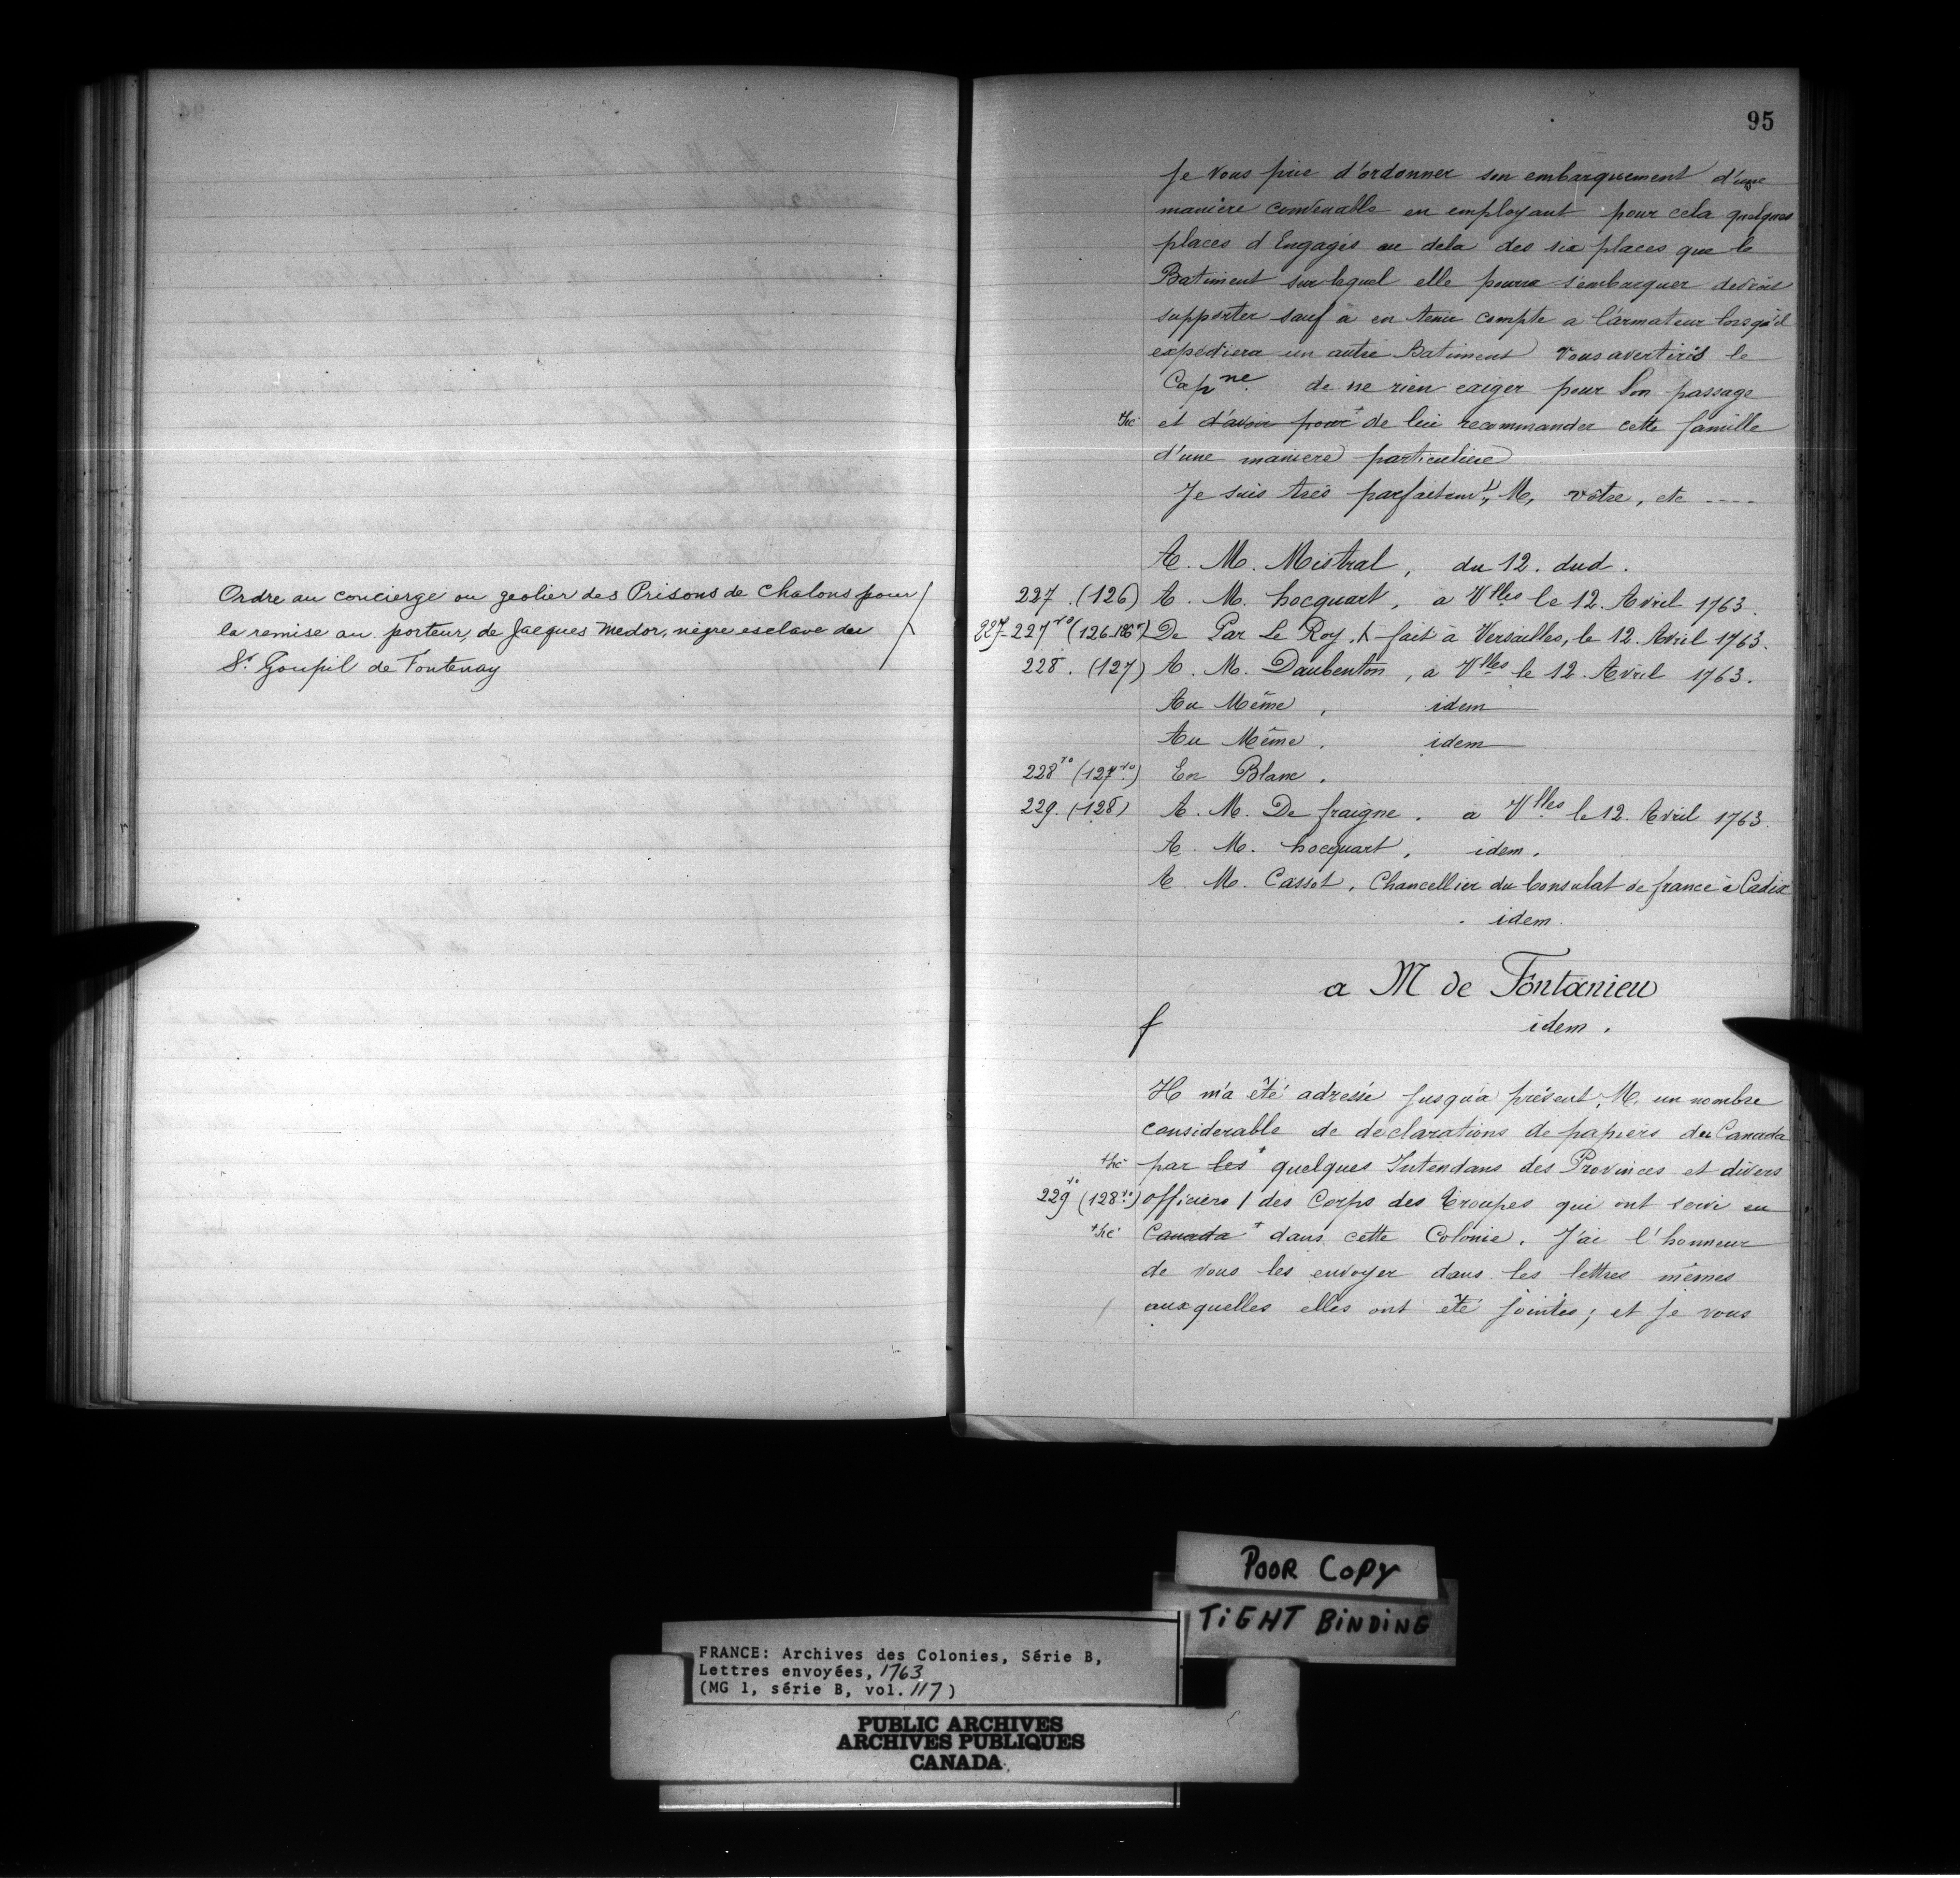 Ordre au concierge ou geolier des Prisons de Chalons pour
la remise au porteur, de Jacques Medor, nègre esclave du
Sr. Goupil de Fontenay
95
Je vous prie d'ordonner son embarquement d'une
maniere convenable en employant pour cela quelques
places d'Engagés au dela des six places que le
Batiment sur lequel elle pourra s'embarquer devroit
supporter sauf à en tenir compte a l'armateur lorsqu'il
expediera un autre Batiment Vous avertirés le
Capne. de ne rien exiger pour son passage
et d'avoir pour + de lui recommander cette famille
d'une maniere particuliere
Je suis trés parfaitemt, M, vôtre, etc ----
A. M. Mistral, du 12. dud.
227. (126) A. M. hocquart, a Vlles le 12. Avril 1763.
227-227vo (126-126vo) De Par Le Roy, fait à Versailles, le 12. Avril 1763.
228. (127) A. M. Daubenton, a Vlles le 12. Avril 1763.
Au Même, idem
Au Même, idem
228vo (127vo) En Blanc.
229. (128) A. M. De fraigne. a Vlles le 12. Avril 1763.
A. M. hocquart, idem.
A. M. Cassot, Chancellier du Consulat de france à Cadix
idem.
a M de Fontanieu
f idem.
Il m'a été adressé jusqu'a présent, M. un nombre
considerable de declarations de papiers du Canada
par les + quelques Intendans des Provinces et divers
229vo (128vo) officiers / des Corps des Troupes qui ont servi en
Canada + dans cette Colonie. J'ai l'honneur
de vous les envoyer dans les lettres mêmes
auxquelles elles ont été jointes; et je vous
POOR COPY
TIGHT BINDING
FRANCE: Archives des Colonies, Série B,
Lettres envoyées, 1763
(MG 1, série B, vol. 117)
PUBLIC ARCHIVES
ARCHIVES PUBLIQUES
CANADA